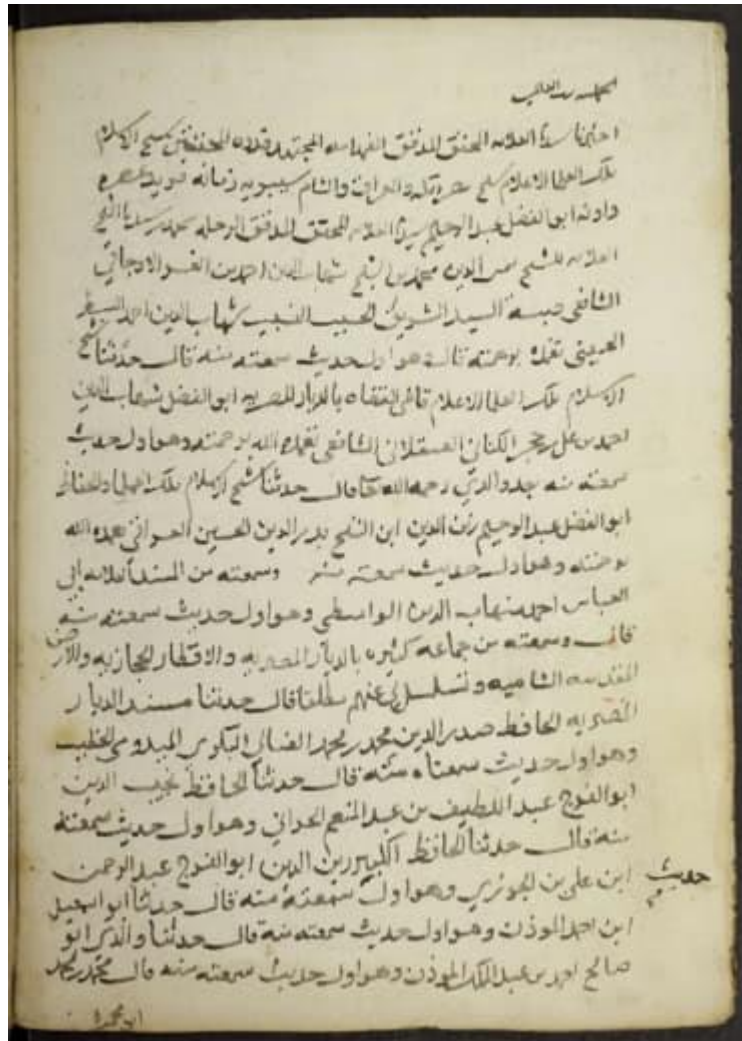 الحمد لله رب العالمين
اخبرنا سيدنا العلامه المحقق المدقق الفهامه المجتهد قدوة المحققين شيخ الاسلام
ملك العلما الاعلام شيخ والعراق والشام سيبويه زمانه فريد عصره
واوانه ابو الفضل عبد الرحيم سيدنا العلامه المحقق المدقق الرحله محمد بن سيدنا الشيخ
العلامه الشيخ شمس الدين محمد بن الشيخ شهاب الدين احمد بن الاوجاقي
الشافعي السيد الشريف الحسيب النسيب شهاب الدين احمد
الحسيني تغمده برحمته قال وهو اول حديث سمعته منه قال حدثنا شيخ
الاسلام ملك العلما الاعلام قاضي القضاه بالديار المصريه ابو الفضل شهاب الدين
احمد بن علي بن حجر الكناني العسقلاني الشافعي تغمده الله برحمته وهو اول حديث
سمعته منه والدي رحمه الله قال حدثنا شيخ الاسلام ملك العلما والحفاظ
ابو الفضل عبد الرحيم زين الدين ابن الشيخ بدر الدين الحسين العراقي تغمده الله
برحمته وهو اول حديث سمعته منه وسمعته من المسند ابي
العباس احمد شهاب الدين الواسطي وهو اول حديث سمعته منه
قال وسمعته من جماعه كثيره بالديار المصريه والاقطار الحجازيه والارض
المقدسه الشاميه وتسلسل لي عنهم مطلقا قال حدثنا مسند الديار
المصريه الحافظ صدر الدين محمد بن محمد البكري الميدومي الخطيب
وهو اول حديث سمعناه منه قال حدثنا الحافظ نجيب الدين
ابو الفرج عبد اللطيف بن عبد المنعم الحراني وهو اول حديث سمعته
منه قال حدثنا الحافظ الكبير زين الدين ابو الفرج عبد الرحمن
ابن علي بن الجوزي وهو اول سمعته منه قال حدثنا ابو اسمعيل
حديث
ابن احمد الموذن وهو اول حديث سمعته منه قال حدثنا والدي ابو
صالح احمد بن عبد الملك الموذن وهو اول حديث سمعته منه قال محمد بن محمد